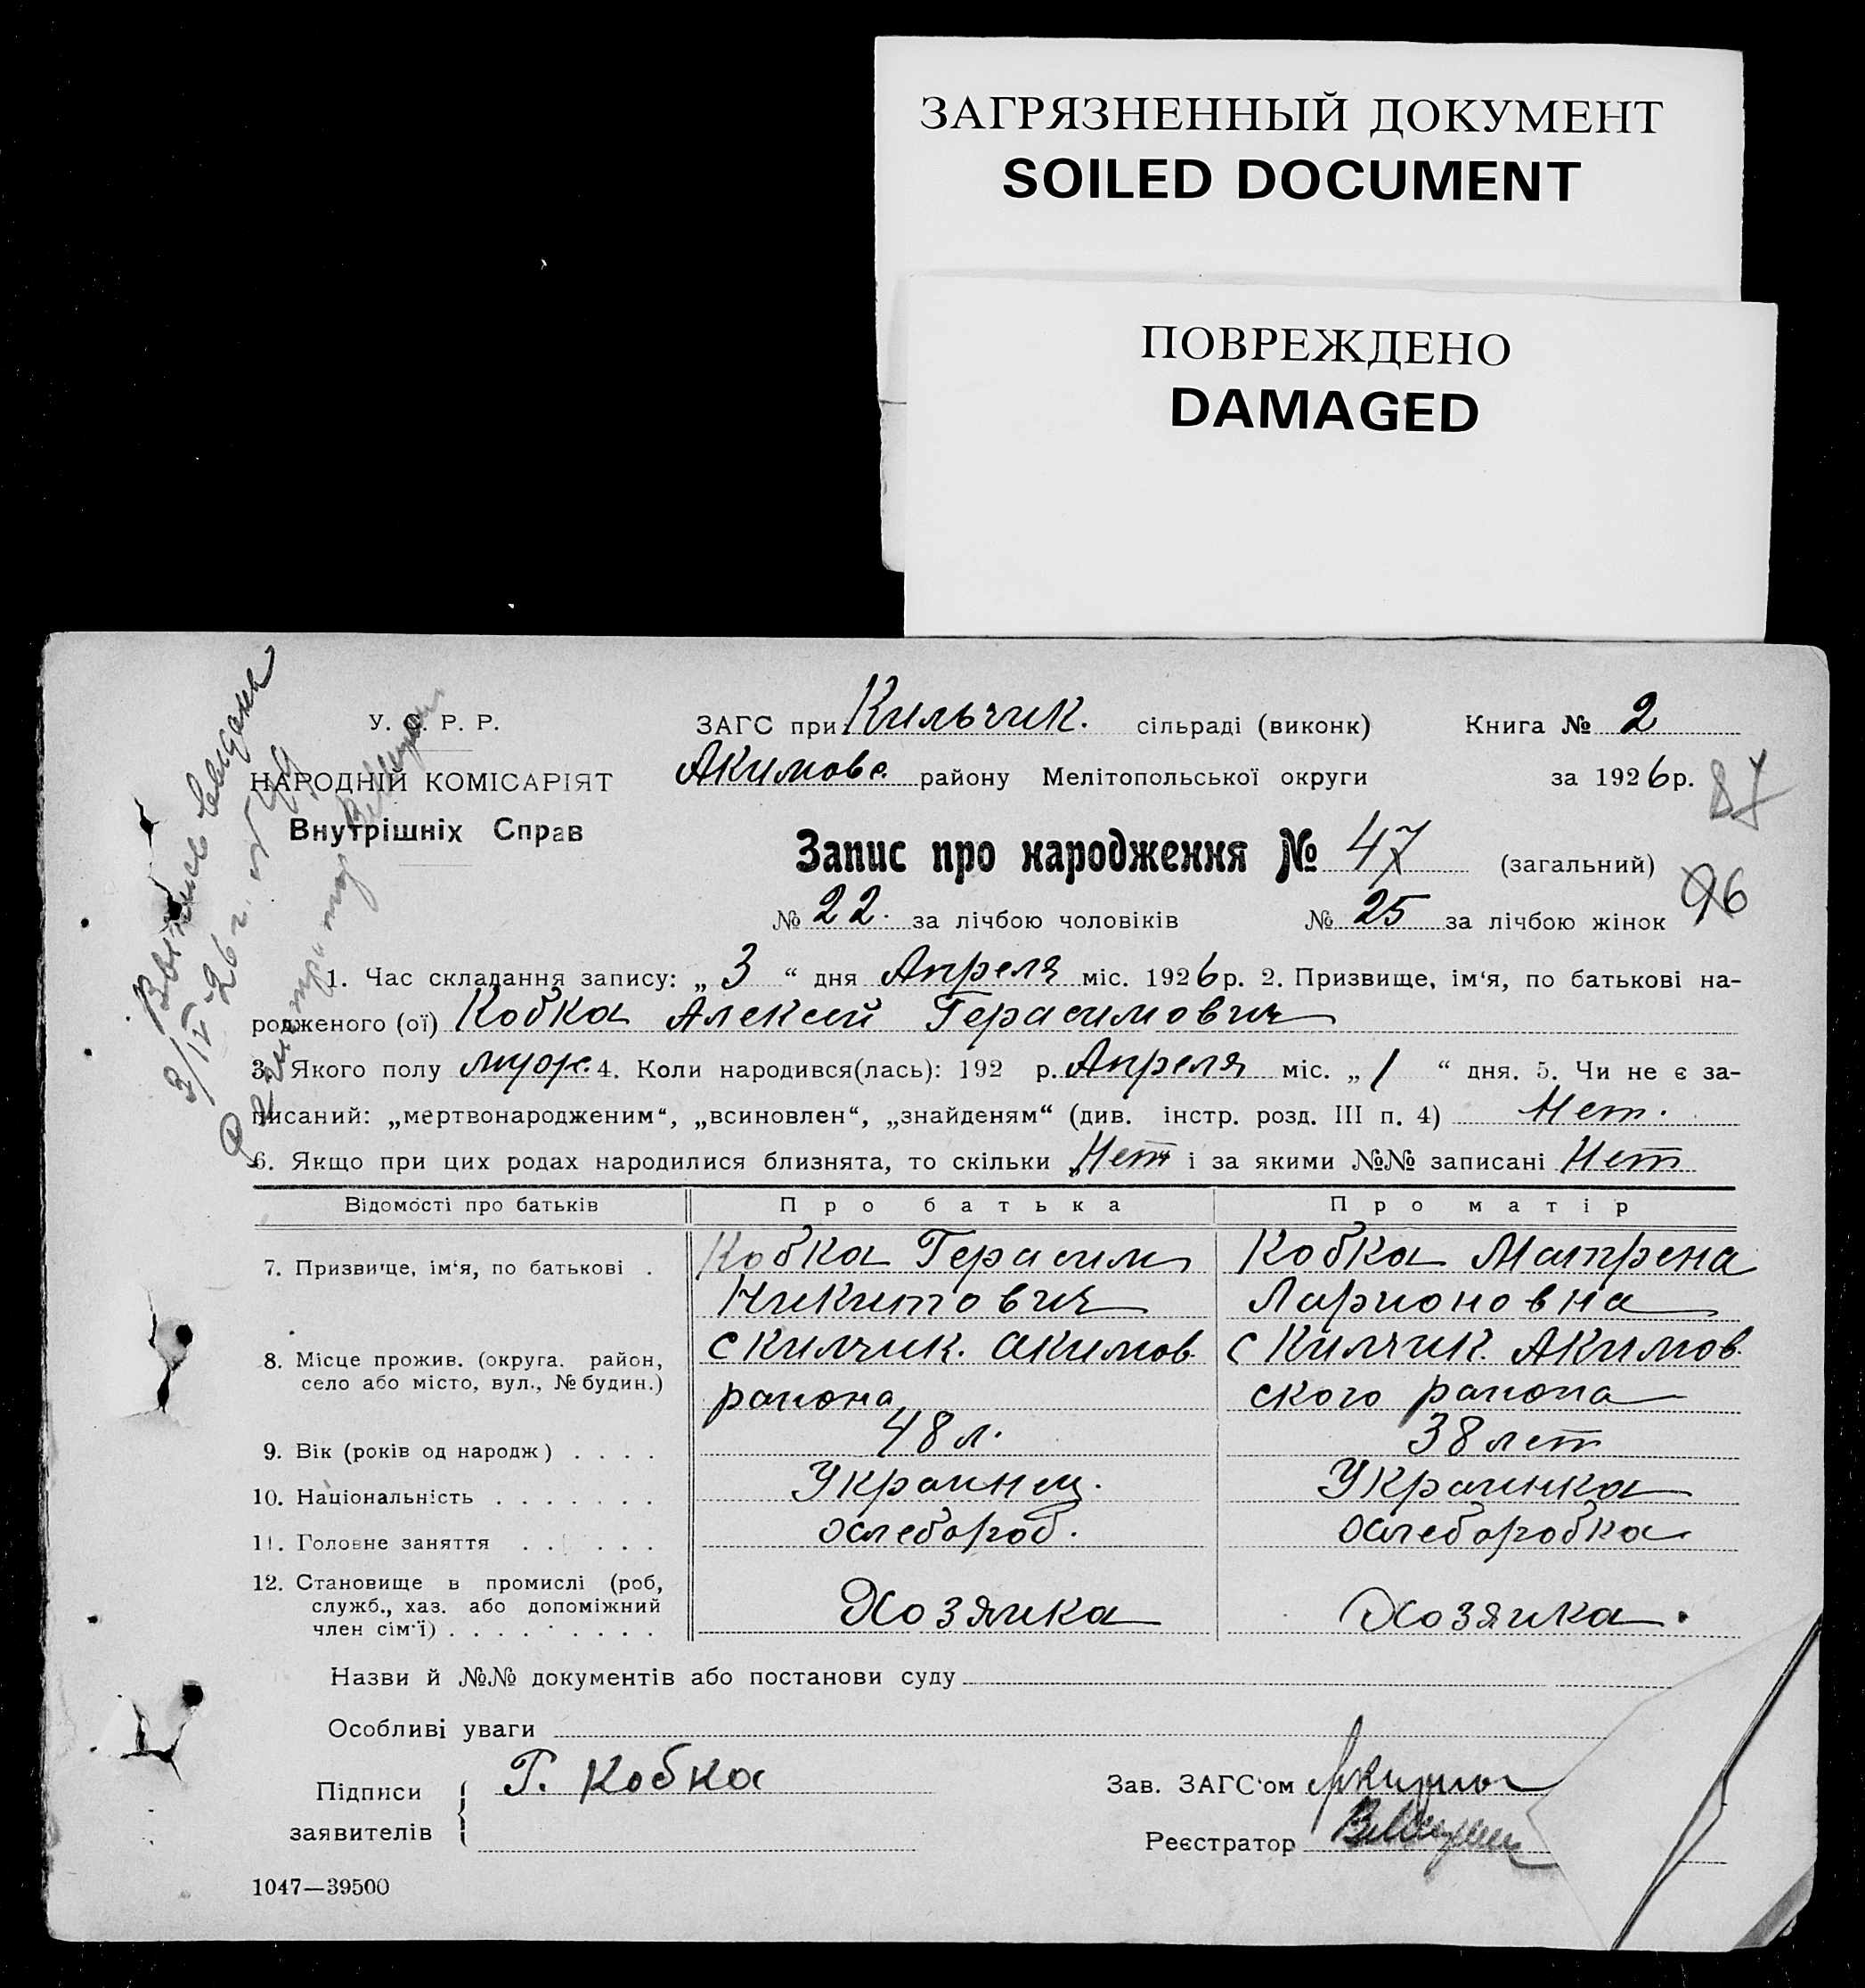 ЗАГРЯЗНЕННЫЙ ДОКУМЕНТ
SOILED DOCUMENT
ПОВРЕЖДЕНО
DAMAGED
У. С. Р. Р.
НАРОДНІЙ КОМІСАРІЯТ
Внутрішніх Справ
ЗАГС при Кильчик. сільраді (виконк) Книга № 2
Акимовс. району Мелітопольської округи за 1926 р.
87
Запис про народження № 47 (загальний)
96
№ 22. за лічбою чоловіків № 25 за лічбою жінок
3/IV-26 г.
1. Час складання запису: „ 3 “ дня Апреля міс. 1926 р. 2. Призвище, ім‘я, по батькові на-
родженого (ої) Кобка Алексей Герасимович
3. Якого полу муж. 4. Коли народився(лась): 192 р. Апреля міс. „ 1 “ дня. 5. Чи не є за-
писаний: „мертвонародженим“, „всиновлен“, „знайденям“ (див. інстр. розд. III п. 4) Нет.
6. Якщо при цих родах народилися близнята, то скільки „Нет“ і за якими №№ записані Нет
Відомості про батьків Про батька Про матір
7. Призвище, ім‘я, по батькові . Кобка Герасим Кобка Матрена
Никитович Ларионовна
8. Місце прожив. (округа. район, с Килчик. акимов с Килчик. Акимов
село або місто, вул., № будин.) района ского района
9. Вік (років од народж) . . . . 48 л. 38 лет
10. Національність . . . . . . . Украинец. Украинка
11. Головне заняття . . . . . . хлебороб. хлеборобка
12. Становище в промислі (роб,
служб., хаз. або допоміжний Хозяика Хозяика.
член сім‘ї) . . . . . . . . .
Назви й №№ документів або постанови суду
Особливі уваги
Підписи Г. Кобка Зав. ЗАГС‘ом
заявителів Реєстратор
1047—39500